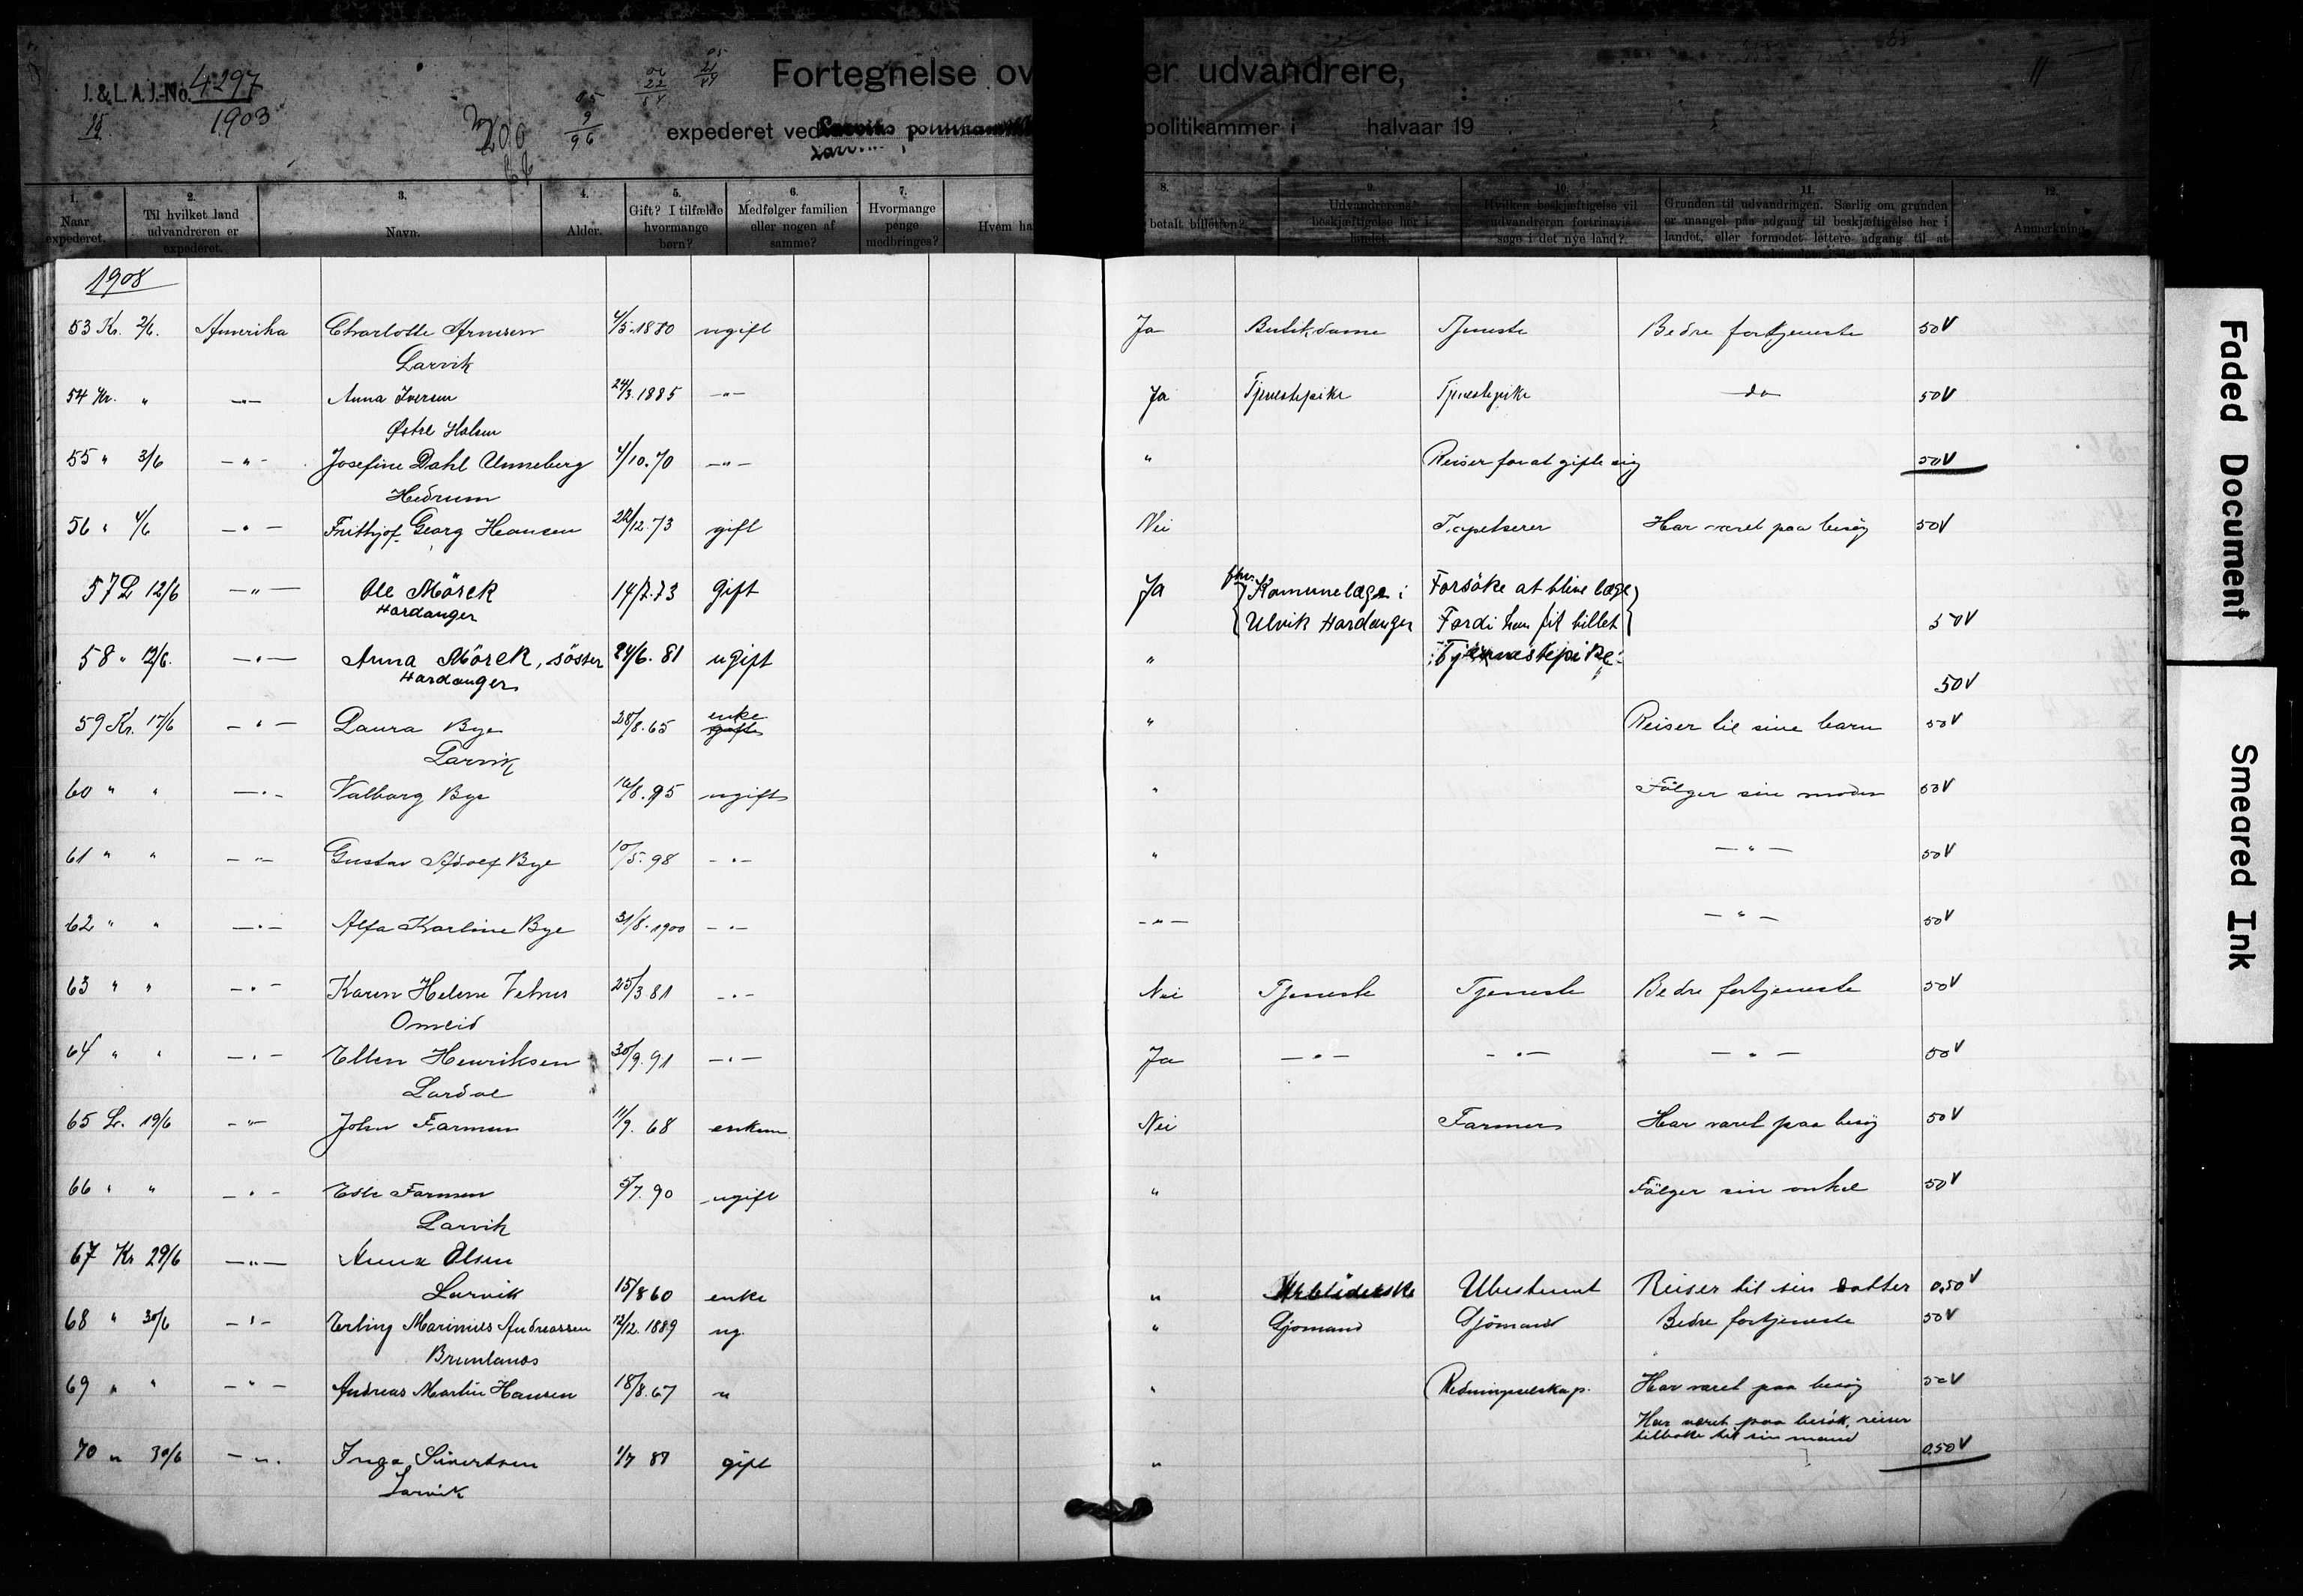 J. & L. A. J.-No. 4297
15 1903
200
Fortegnelse over udvandrere,
expederet ved Larviks politikammer i halvaar 19
1. 2. 3. 4. 5. 6. 7. 8. 9. 10. 11. 12.
Naar expederet. Til hvilket land udvandreren er expederet. Navn. Alder. Gift? I tilfælde hvormange børn? Medfølger familien eller nogen af samme? Hvormange penge medbringes? Hvem ha betalt billetten? Udvandrerens beskjæftigelse her i landet? Hvilken beskjæftigelse vil udvandreren fortrinsvis søge i det nye land? Grunden til udvandringen. Særlig om grunden er mangel paa adgang til beskjæftigelse her i landet, eller formodet lettere adgang til at Anmerkning
1908
53 Kr. 2/6. Amerika Charlotte Arnesen 4/5.1880 ugift Ja Butikdame Tjeneste Bedre fortjeneste 50 V
Larvik
54 Kr. " —"— Anna Iversen 24/3.1885 —"— Ja Tjenestepike Tjenestepike do 50 V
Østre Halsen
55 " 3/6 —"— Josefine Dahl Unneberg 4/10.70 —"— " Reiser for at gifte sig 50 V
Hedrum
56 " 4/6 —"— Frithjof Georg Hansen 22/12.73 gift Nei Tapetserer Har været paa besög 50 V
57 L 12/6 —"— Ole Mörck 14/7.73 Gift Ja fhv. Komunelæge i Forsöke at blive læge
Hardanger Ulvik Hardanger Fordi han fik billet 50 V
58 " 12/6. —"— Anna Mörck, söster 24/6.81 ugift " Tjenestepike
Hardanger 50 V
59 Kr. 17/6 —"— Laura Bye 28/8.65 enke gift " Reiser til sine barn 50 V
Larvik
60 " " —"— Valborg Bye 16/8.95 ugift " Fölger sin moder 50 V
61 " " —"— Gustav Adolf Bye 10/5.98 —"— " —"— 50 V
62 " " —"— Alfa Karline Bye 31/8.1900 —"— —"— —"— 50 V
63 " " —"— Karen Helene 25/3 81 —"— Nei Tjeneste Tjeneste Bedre fortjeneste 50 V
Onseid
64 " " —"— Ellen Henriksen 30/9.91 —"— Ja —"— —"— —"— 50 V
Lardal
65 L. 19/6 —"— John Farmen 11/9.68 enkem Nei Farmer Har været paa besög 50 V
66 " " —"— Farmen 5/7.90 ugift " Fölger sin onkel 50 V
Larvik
67 Kr 29/6 —"— Anna Olsen
Larvik 15/8 60 enke " Arbeiderske Ubestemt Reiser til sin datter 0,50 V
68 " 30/6 —"— Erling Marinius Andreassen 12/12.1889 ug. " Sjömand Sjömand Bedre fortjeneste 50 V
Brunlanes
69 " " —"— Andreas Martin Hansen 18/8.67 " " Redningsselskap. Har været paa besög 50 V
Har været paa besök, reiser
tilbake til sin mand
70 " 30/6 —"— Inga Sivertsen 1/7 87 gift " 0.50 V
Larvik
Faded Document
Smeared Ink